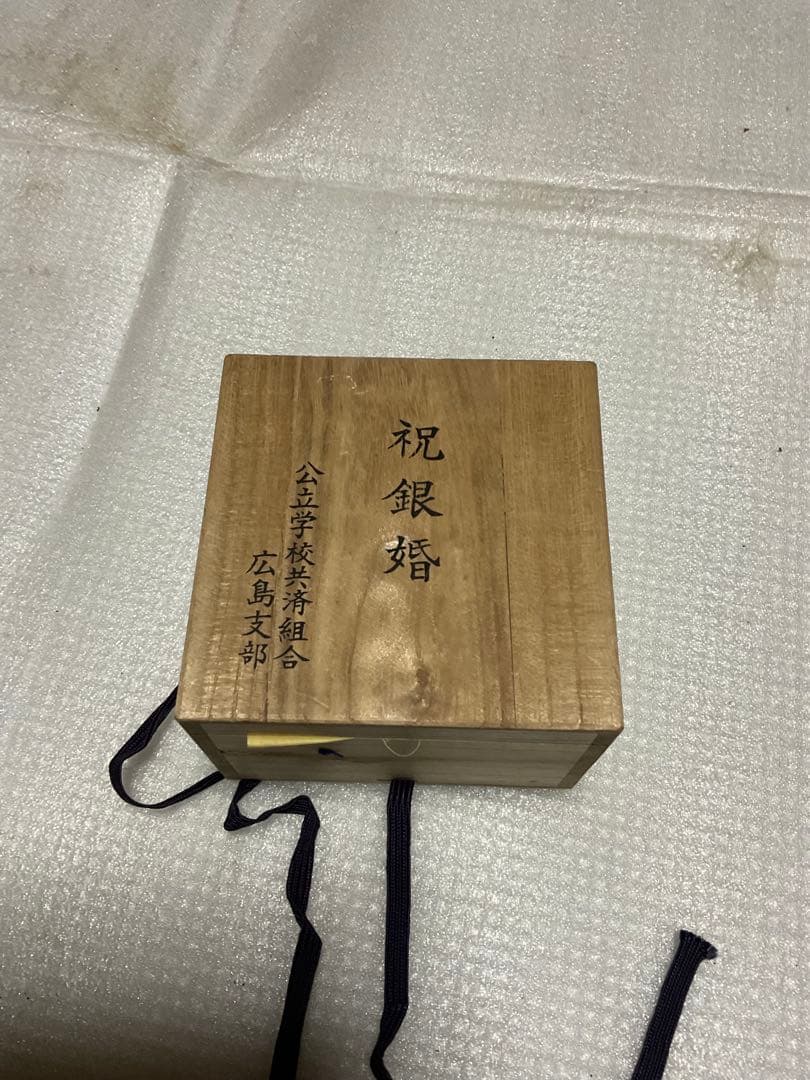 祝銀婚
公立学校共済組合
広島支部